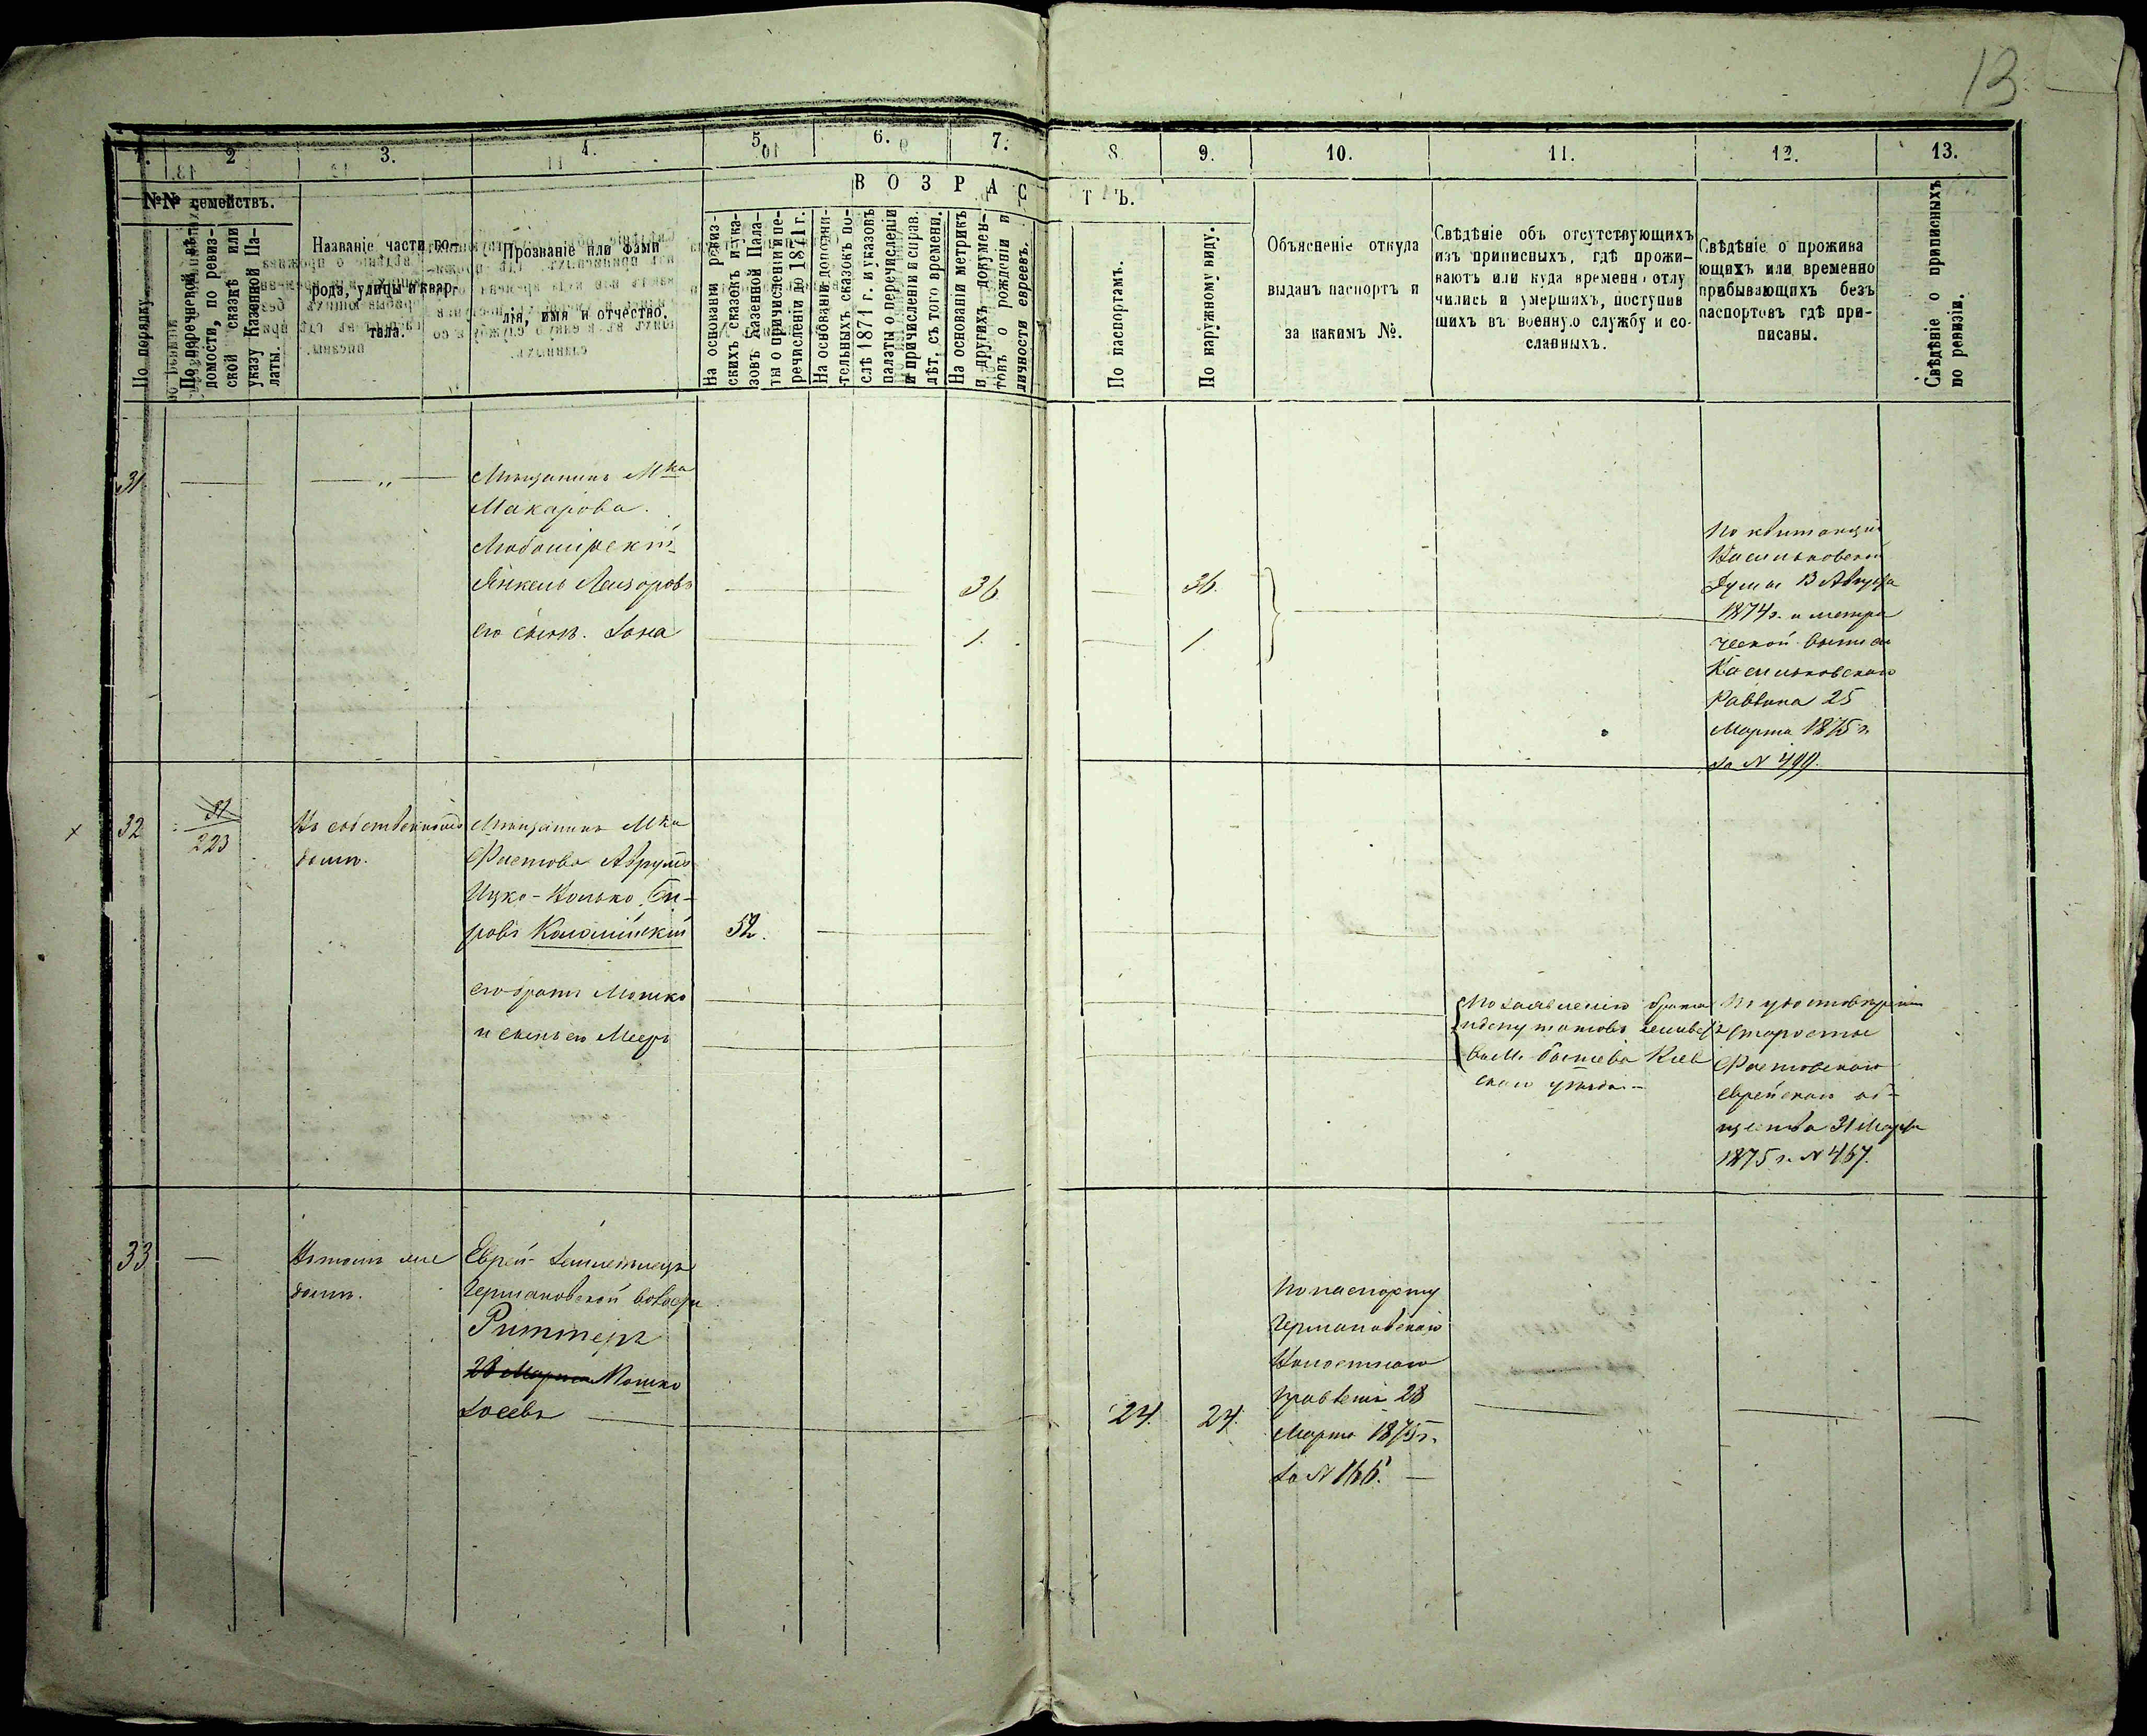 13
1.
2
3.
4.
5.
6.
7.
8.
9.
10.
11.
12.
13.
№№ семействъ.
По порядку
По перечневой вѣ-
домости, по ревиз-
ской сказкѣ или
указу Казенной Па-
латы.
Названіе части го-
рода, улицы и квар-
тала.
Прозваніе или фами
лія, имя и отчество.
ВОЗРАС
ТЪ.
На основаніи ревиз-
скихъ сказокъ и ука-
зовъ Казенной Пала-
ты о причисленіи и пе-
речисленіи до 1871 г.
На основаніи дополни-
тельныхъ сказокъ по-
слѣ 1871 г. и указовъ
палаты о перечисленіи
и причисленіи и справ.
лѣт. съ того времени.
На основаніи метрикъ
и другихъ докумен-
товъ о рожденіи и
личности евреевъ.
По паспортамъ.
По наружному виду.
Объясненіе откуда
выданъ паспортъ и
за какимъ №.
Свѣдѣніе объ отсутствующихъ
изъ приписныхъ, гдѣ прожи-
ваютъ или куда времени отлу
чились и умершихъ, поступив
шихъ въ военную службу и со-
сланныхъ.
Свѣдѣніе о прожива
ющихъ или временно
прибывающихъ безъ
паспортовъ гдѣ при-
писаны.
Свѣдѣніе о приписныхъ
по ревизіи.
31
Мѣщанинъ Мка
Макарова
Янкель Лейзоровъ 36 36
его сынъ 1. 1
По квитанціи
Васильковской
Думы 13 Августа
1874 г. и метри
ческой выписи
Васильковскаго
Раввина 25
Марта 1875 г.
за N 499.
32
31
223
Въ собственномъ
домѣ.
Мѣщанинъ Мка
Фастова Аврумъ
Ицко-Волько Бе-
ровъ 52.
его братъ Мошко
и сынъ его Мееръ
По заявленію брата
и депутатовъ
Кіев
скаго уѣзда
По удостовѣренію
старосты
Фастовскаго
еврейскаго об-
щества 31 Марта
1875 г. N 467.
33
Въ томъ же
домѣ.
Еврей-Земледѣлецъ
Германовской волости
Риттеръ
28 Марта Мошко
Іосевъ 24. 24.
По паспорту
Германовскаго
Волостнаго
Правленія 28
Марта 1875 г.
за N 166.